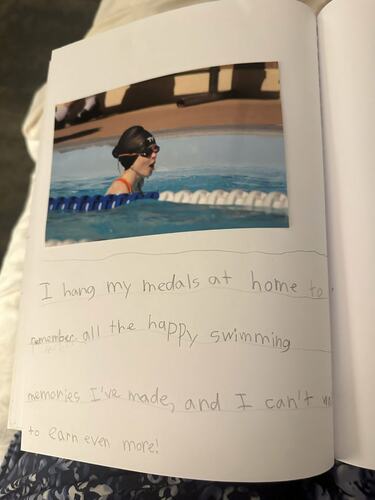 I hang my medals at home to
remember all the happy swimming
memories I've made, and I can't
to earn even more!